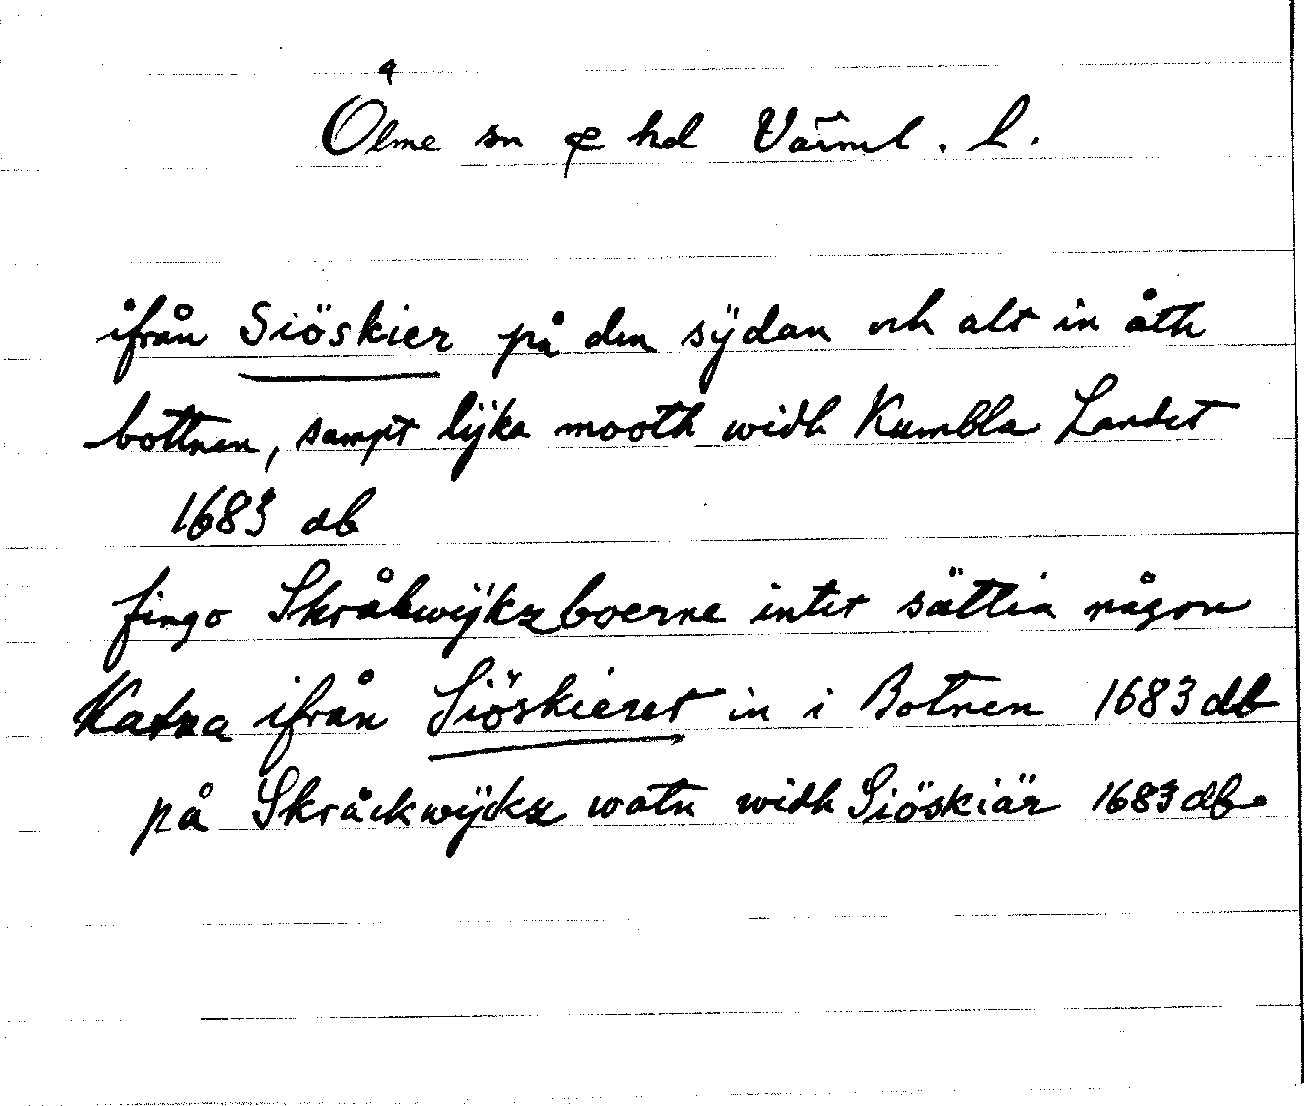 Ölme sn & hd Värml. L.
ifrån Siöskier på den sÿdan och alt in åth
bottnen, sampt lÿka mooth widh Kumbla Landet
1683 db
fingo Skråkwÿkzboerne intet sättia någon
Katza ifrån Siöskieret in i Botnen 1683 db
på Skråckwÿckz watn widh Siöskiär 1683 db